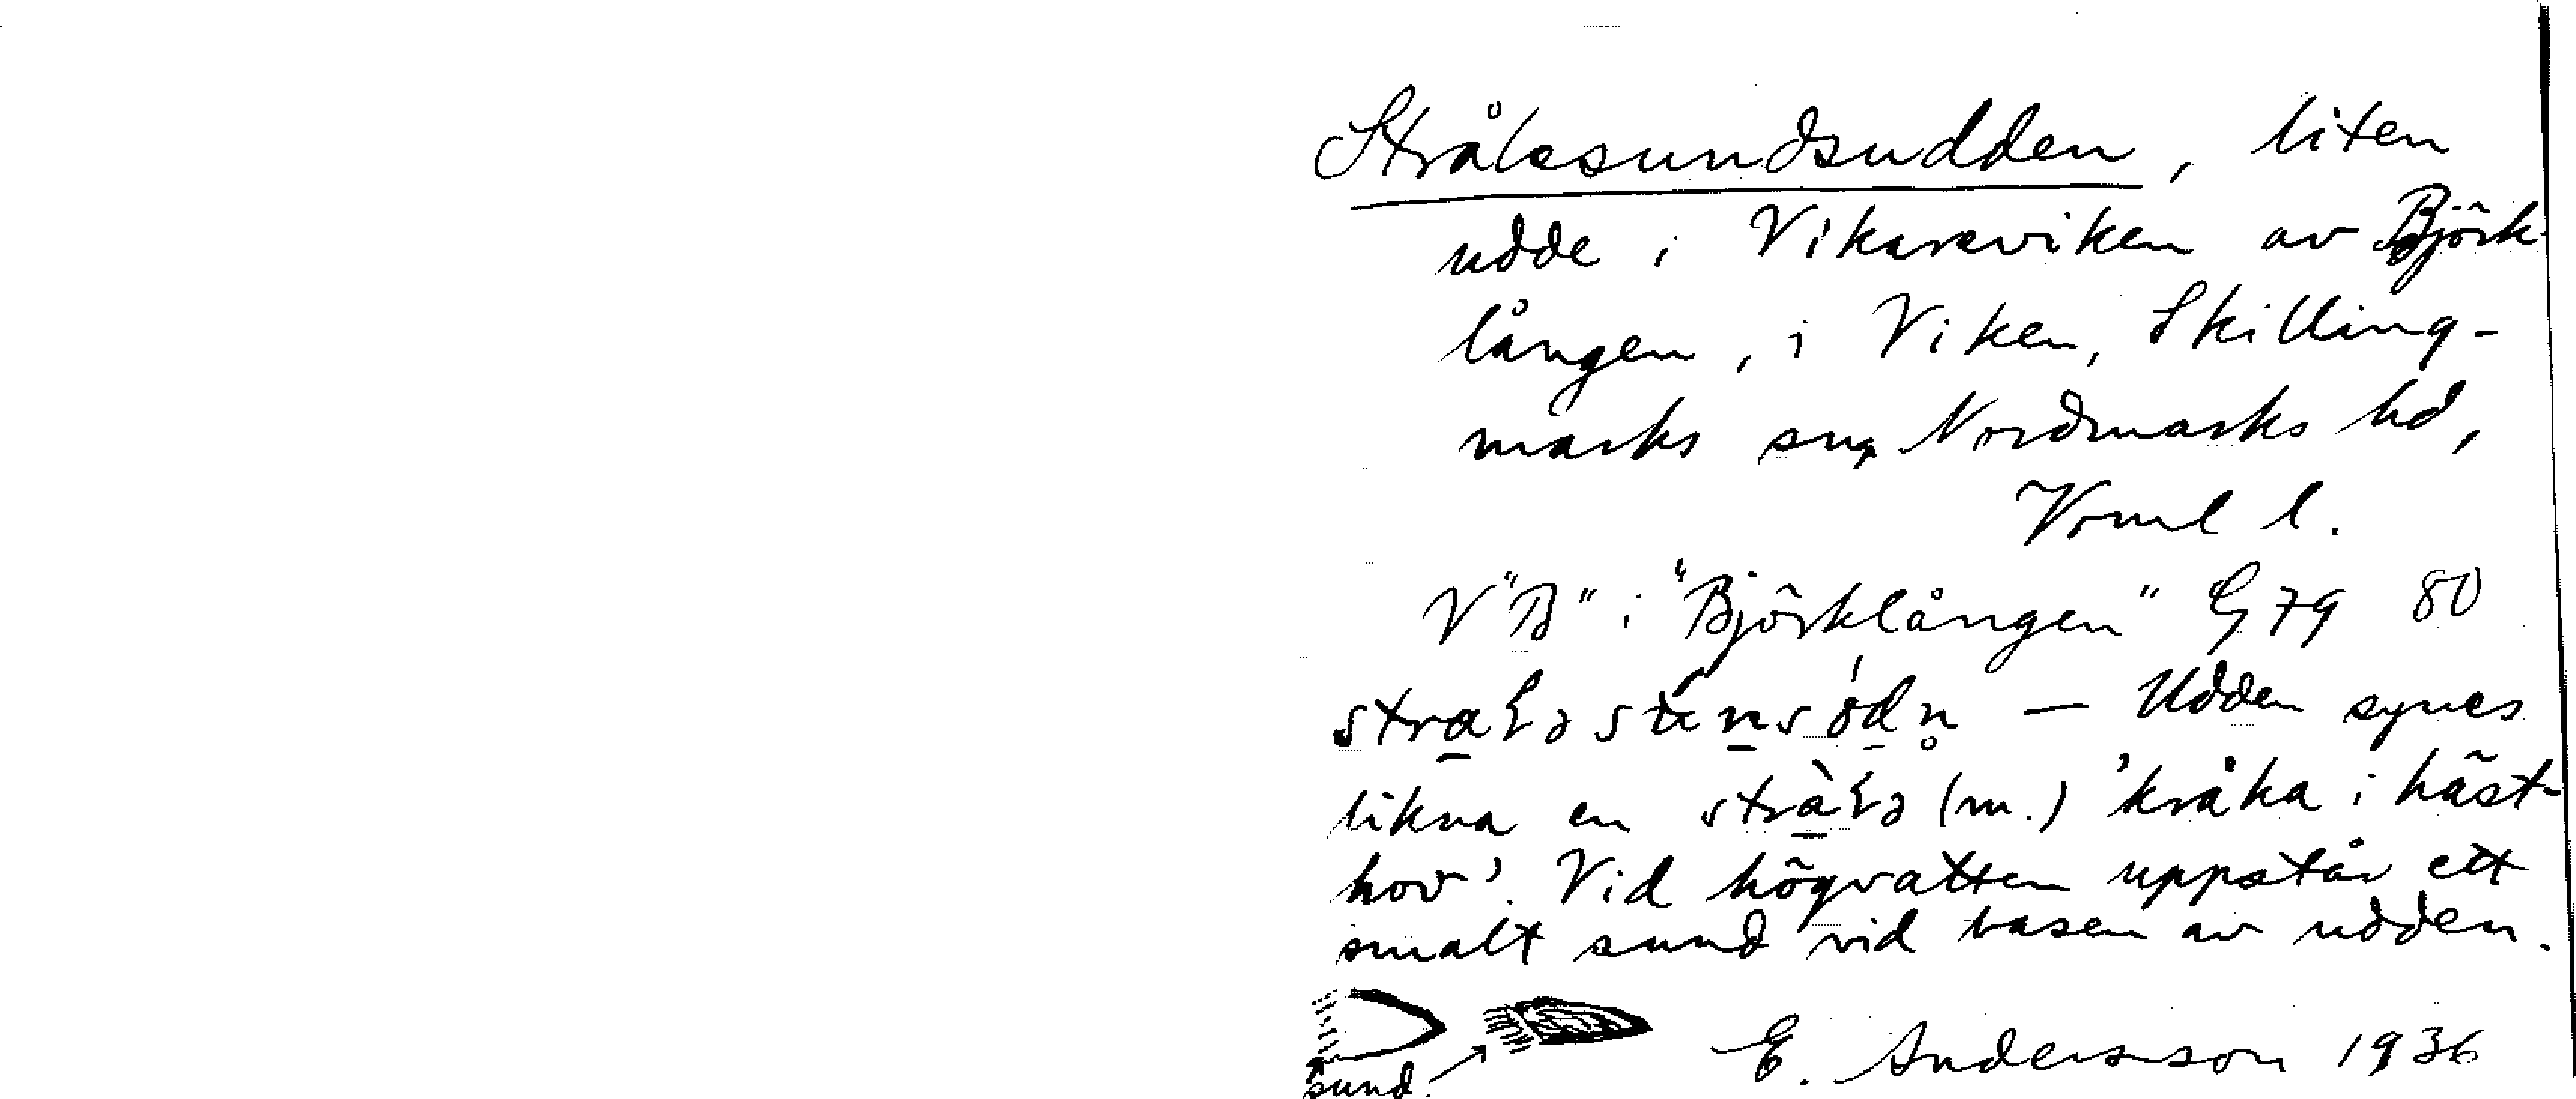 Strålesundsudden, liten
udde i Vikareviken av Björk-
lången, i Viken, Skilling-
marks sn, Nordmarks hd,
Vrml l.
V "B" i "Björklången" G 79 80
— Udden synes
likna en (m.) 'kråka i häst-
hov'. Vid högvatten uppstår ett
smalt sund vid basen av udden.
sund.
E. Andersson 1936